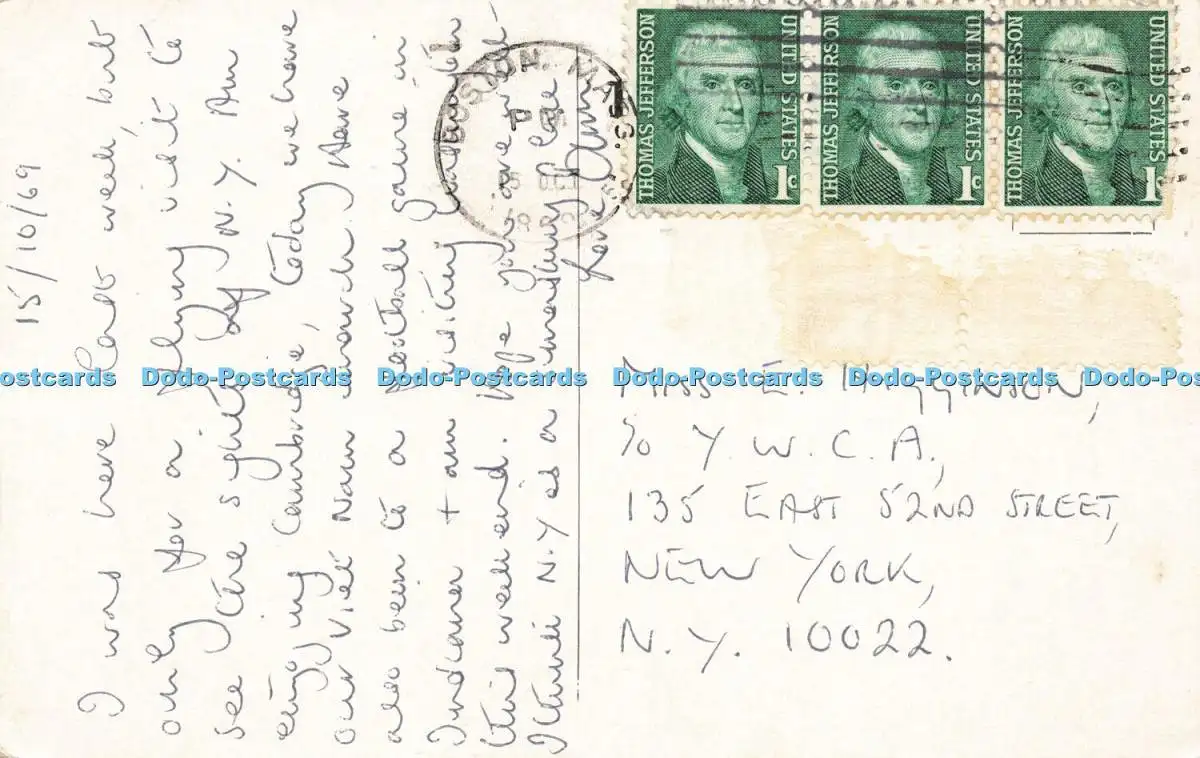 15/10/69
I was here last week, but
only for a flying visit to
see the sights of N.Y. Am
enjoying Cambridge, today we have
our Viet Nam march, Have
also been to a football game in
Indiana + am visiting
this weekend. Hope you are well
I think N.Y is a place
love
BOSTON, MASS.
THOMAS JEFFERSON
UNITED STATES
1c
THOMAS JEFFERSON
UNITED STATES
1c
THOMAS JEFFERSON
UNITED STATES
1c
Dodo-Postcards Dodo-Postcards Dodo-Postcards Dodo-Postcards Dodo-Postcards Dodo-Postcards
MISS E. HIGGINSON,
c/o Y.W.C.A.,
135 EAST 52ND STREET,
NEW YORK,
N.Y. 10022.